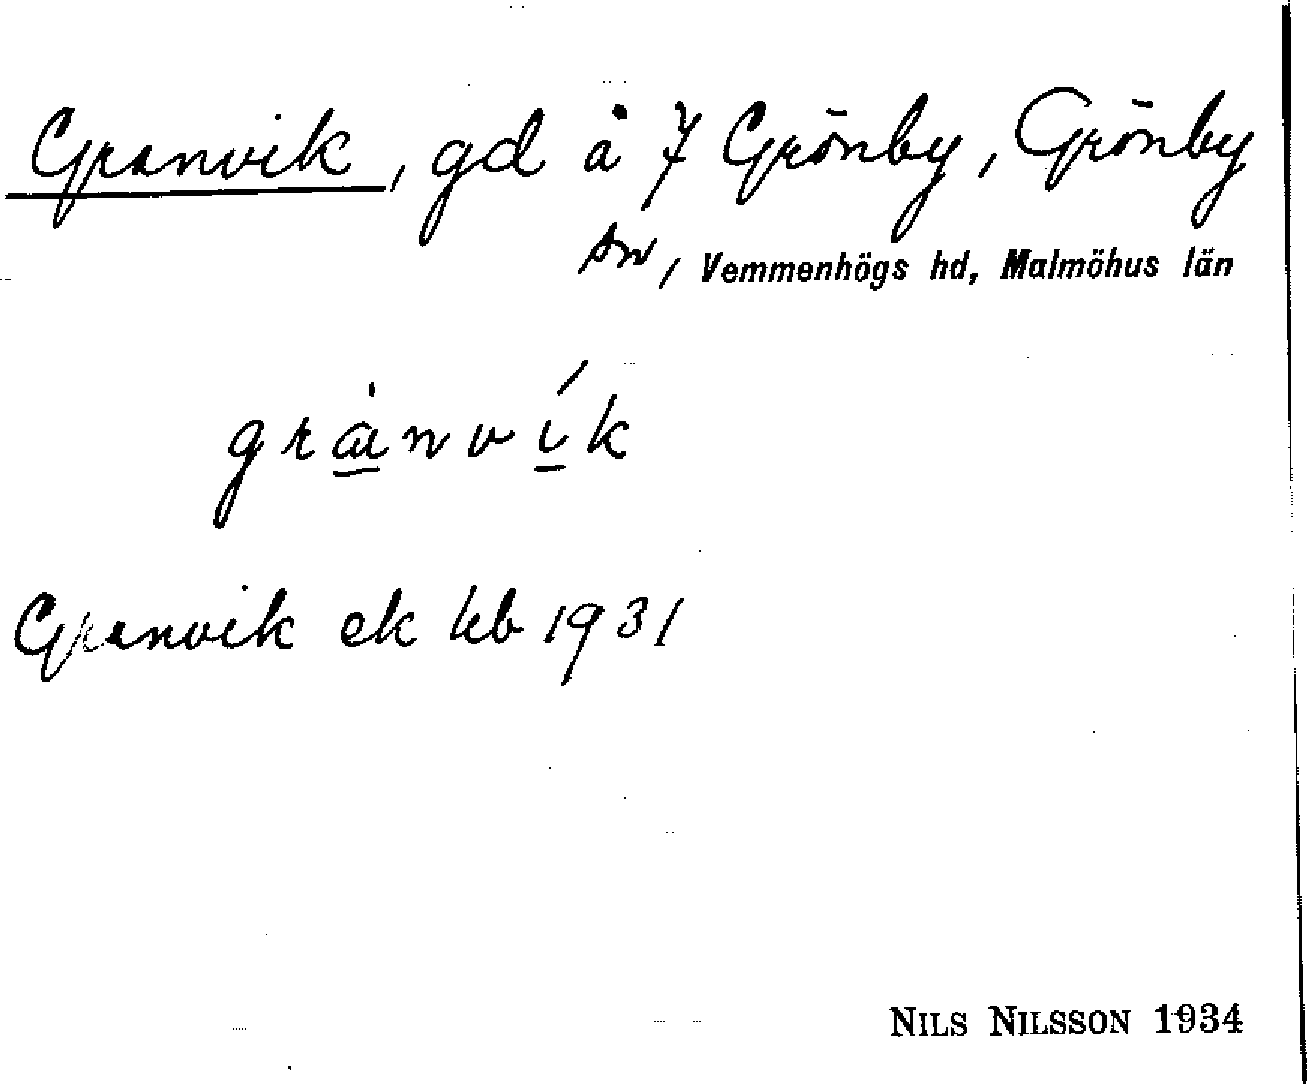 Granvik, gd å 7 Grönby, Grönby
sn, Vemmenhögs hd, Malmöhus län
granvik
Granvik ek kb 1931
NILS NILSSON 1934